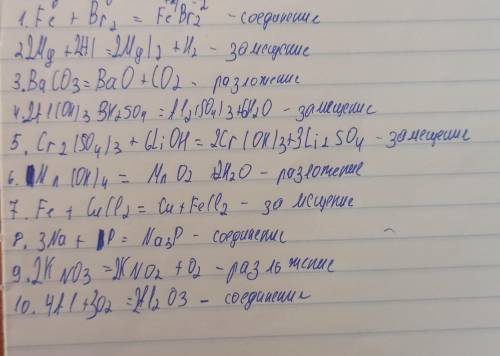 1. Fe⁰ + Br₂⁰ = FeBr₂⁻² - соединение
2. 2Mg + 2HI = 2MgI₂ + H₂ - замещение
3. BaCO₃ = BaO + CO₂ - разложение
4. 2Al(OH)₃ 3H₂SO₄ = Al₂(SO₄)₃ + 6H₂O - замещение
5. Cr₂(SO₄)₃ + 6LiOH = 2Cr(OH)₃ + 3Li₂SO₄ - замещение
6. Mn(OH)₄ = MnO₂ 2H₂O - разложение
7. Fe + CuCl₂ = Cu + FeCl₂ - замещение
8. 3Na + P = Na₃P - соединение
9. 2KNO₃ = 2KNO₂ + O₂ - разложение
10. 4Al + 3O₂ = 2Al₂O₃ - соединение